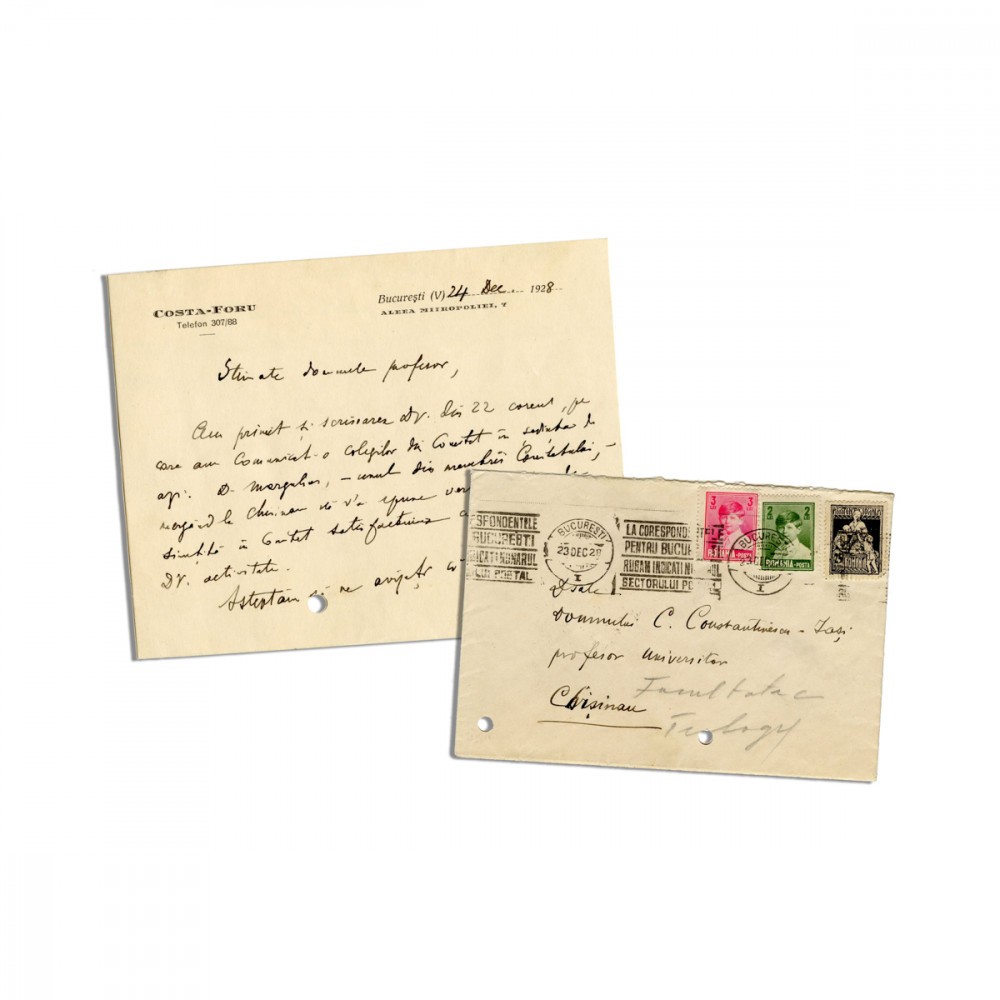 COSTA-FORU
Telefon 307/88
București (V) 24 Dec. 1928
ALEEA MITROPOLIEI, 7
Stimate domnule profesor,
Am primit și scrisoarea dv. din 22 corent, pe
care am comunicat-o colegilor din Comitet în ședința de
azi. D. Margulies, – unul din membrii Comitetului, –
mergând la Chișinău vă va spune
simțită în Comitet satisfacțiunea
Dv. activitate.
Așteptăm să ne avizați
SPONDENTELE
BUCUREȘTI
ICAȚI NUMĂRUL
LUI POSTAL
BUCUREȘTI
23 DEC 28
I
LA CORESPOND
PENTRU BUCUR
RUGAM INDICATI N
SECTORULUI PO
TELE
BUCUREȘTI
23 D
I
3 LEI 3
ROMANIA-POSTA
2 LEI 2
ROMANIA-POSTA
Dsale
Domnului C. Constantinescu-Iași
profesor universitar
Chișinau
Facultatea
Teology